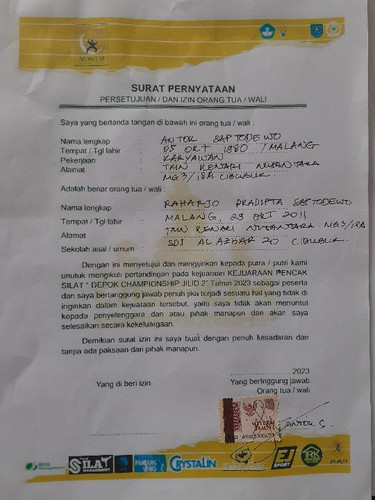 SURAT PERNYATAAN
PERSETUJUAN / DAN IZIN ORANG TUA / WALI
Saya yang bertanda tangan di bawah ini orang tua / wali :
Nama lengkap : ANTOK SAPTODEWO
Tempat / Tgl lahir : 05 OKT 1980 / MALANG
Pekerjaan : KARYAWAN
Alamat : TMN KENARI NUSANTARA
MG3/18A CIBUBUR.
Adalah benar orang tua / wali :
Nama lengkap : RAHARJO PRADIPTA SAPTODEWO
Tempat / Tgl lahir : MALANG, 23 OKT 2011
Alamat : TMN KENARI NUSANTARA MG3/18A
Sekolah asal / umum : SDI AL AZHAR 20 CIBUBUR.
Dengan ini menyetujui dan mengijinkan kepada putra / putri kami
untuk mengikuti pertandingan pada kejuaraan KEJUARAAN PENCAK
SILAT " DEPOK CHAMPIONSHIP JILID 2" Tahun 2023 sebagai peserta
dan saya bertanggung jawab penuh jika terjadi sesuatu hal yang tidak di
inginkan dalam kejuaraan tersebut, yaitu saya tidak akan menuntut
kepada penyelenggara dan atau pihak manapun dan akan saya
selesaikan secara kekeluargaan.
Demikian surat izin ini saya buat dengan penuh kesadaran dan
tanpa ada paksaan dari pihak manapun.
2023
Yang di beri izin
Yang bertanggung jawab
Orang tua / wali
METERAI
TEMPEL
ANTOK S.
SILAT
CRYSTALIN
EJ
SPORT
RK